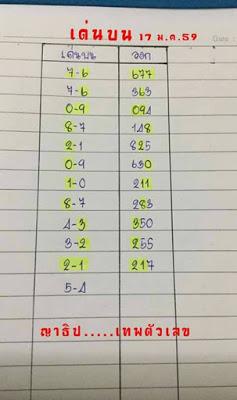 เด่นบน 17 ม.ค.59
เด่นบน ออก
7-6 677
7-6 363
0-9 094
8-7 148
2-1 825
0-9 630
1-0 211
8-7 283
4-3 350
3-2 255
2-1 217
5-4
ญาธิป.....เทพตัวเลข